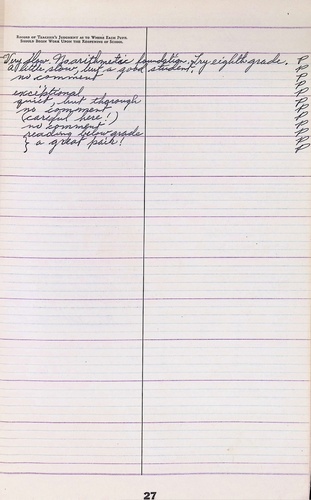 RECORD OF TEACHER'S JUDGMENT AS TO WHERE EACH PUPIL
SHOULD BEGIN WORK UPON THE REOPENING OF SCHOOL
Very slow. No arithmetic foundation. Try eighth grade. P
A little slow, but a good student. P
no comment P
P
exceptional P
quiet, but thorough P
no comment P
(careful here!) P
no comment P
reading below grade P
} a great pair! P
27